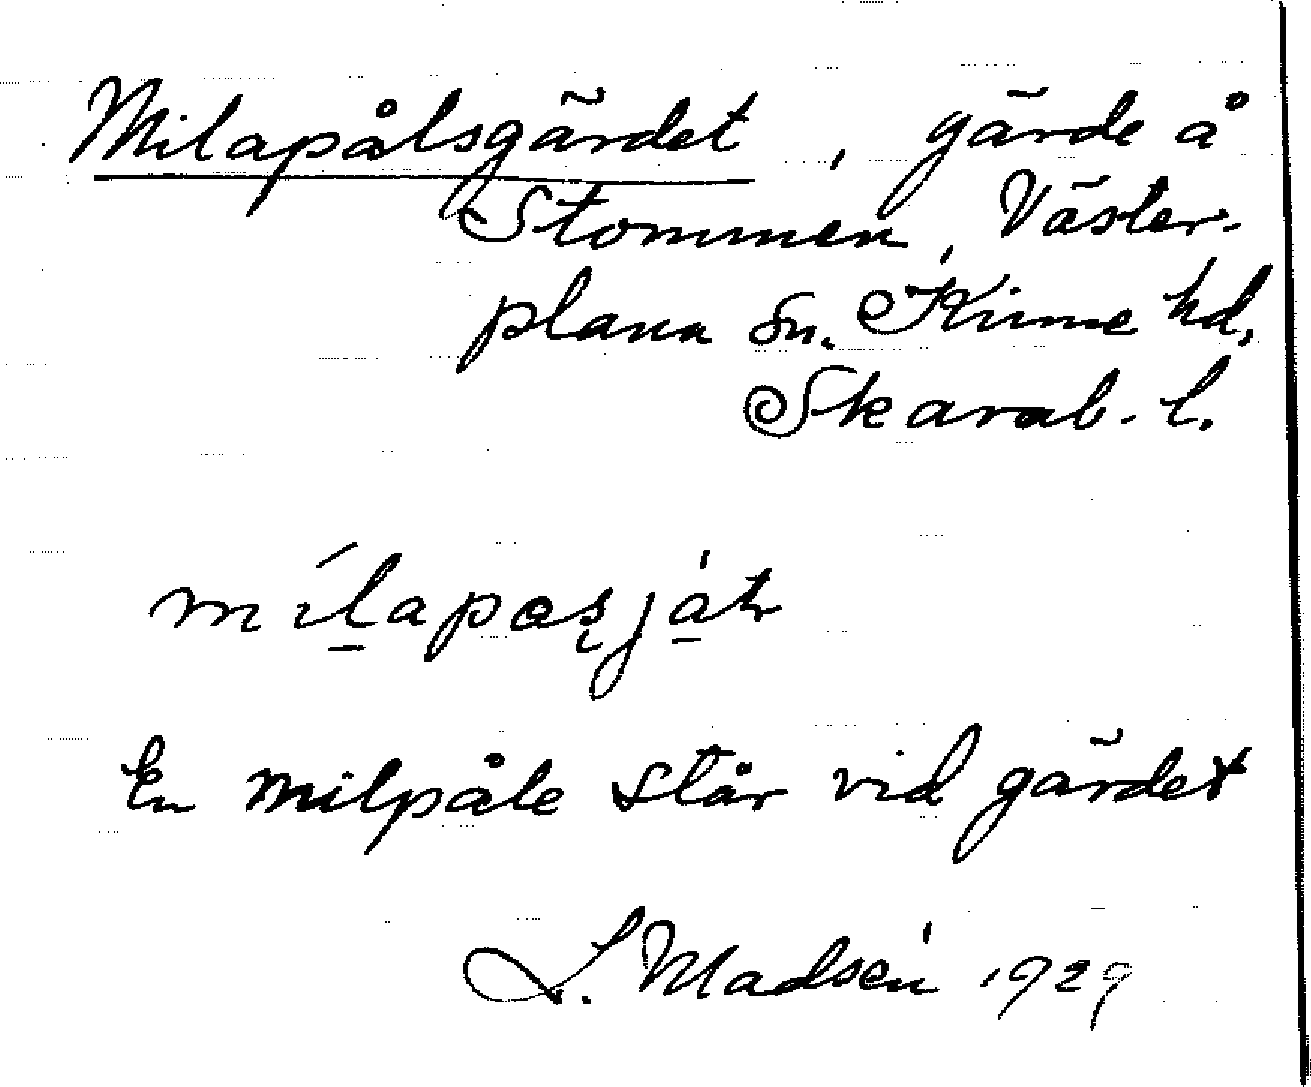 Milapålsgärdet, gärde å
Stommen, Väster-
plana sn. Kinne hd,
Skarab. l.
En milpåle står vid gärdet
L. Madsén 1929